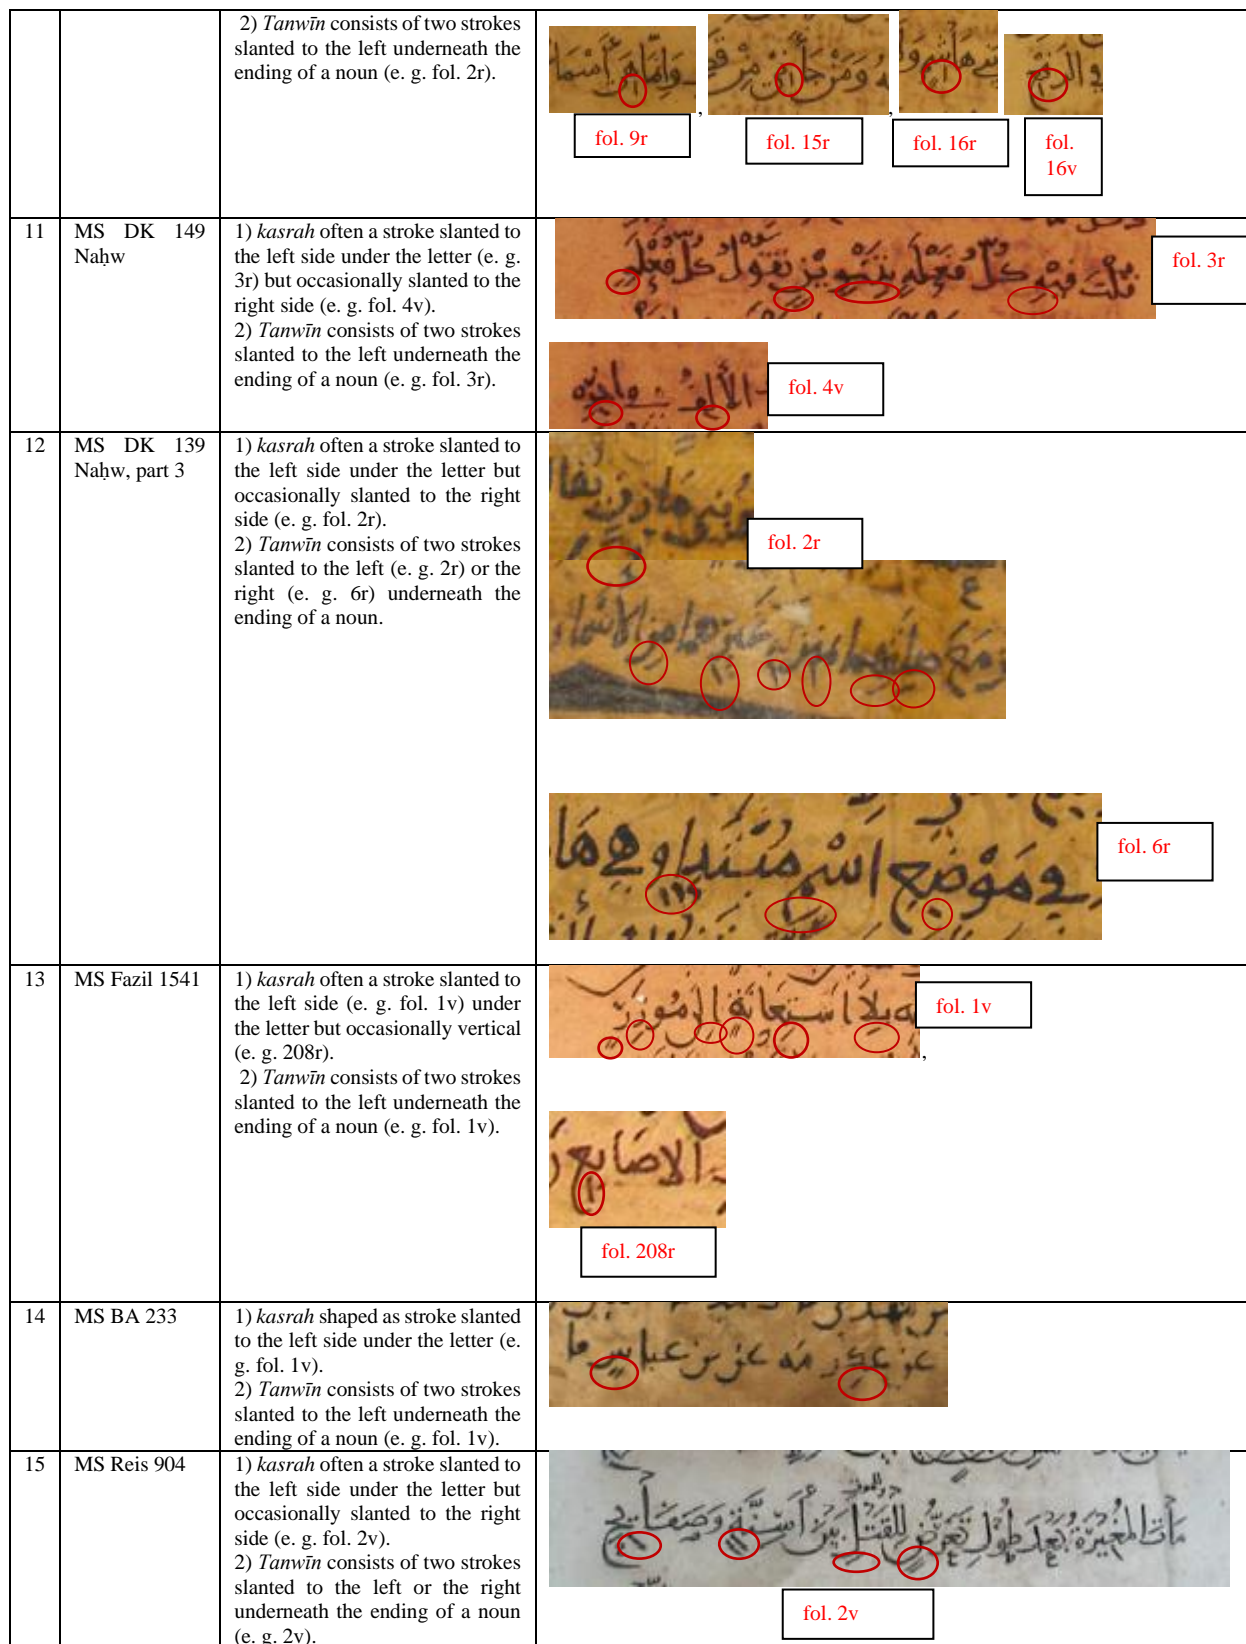 2) Tanwīn consists of two strokes
slanted to the left underneath the
ending of a noun (e. g. fol. 2r).
,
,
fol. 9r
fol. 15r
fol. 16r
fol.
16v
11
MS DK 149
Naḥw
1) kasrah often a stroke slanted to
the left side under the letter (e. g.
3r) but occasionally slanted to the
right side (e. g. fol. 4v).
2) Tanwīn consists of two strokes
slanted to the left underneath the
ending of a noun (e. g. fol. 3r).
fol. 3r
fol. 4v
12
MS DK 139
Naḥw, part 3
1) kasrah often a stroke slanted to
the left side under the letter but
occasionally slanted to the right
side (e. g. fol. 2r).
2) Tanwīn consists of two strokes
slanted to the left (e. g. 2r) or the
right (e. g. 6r) underneath the
ending of a noun.
fol. 2r
في مَوْضِعِ اسْمٍ
fol. 6r
13
MS Fazil 1541
1) kasrah often a stroke slanted to
the left side (e. g. fol. 1v) under
the letter but occasionally vertical
(e. g. 208r).
2) Tanwīn consists of two strokes
slanted to the left underneath the
ending of a noun (e. g. fol. 1v).
fol. 1v
,
الاصَابِع
fol. 208r
14
MS BA 233
1) kasrah shaped as stroke slanted
to the left side under the letter (e.
g. fol. 1v).
2) Tanwīn consists of two strokes
slanted to the left underneath the
ending of a noun (e. g. fol. 1v).
15
MS Reis 904
1) kasrah often a stroke slanted to
the left side under the letter but
occasionally slanted to the right
side (e. g. fol. 2v).
2) Tanwīn consists of two strokes
slanted to the left or the right
underneath the ending of a noun
(e. g. 2v).
fol. 2v